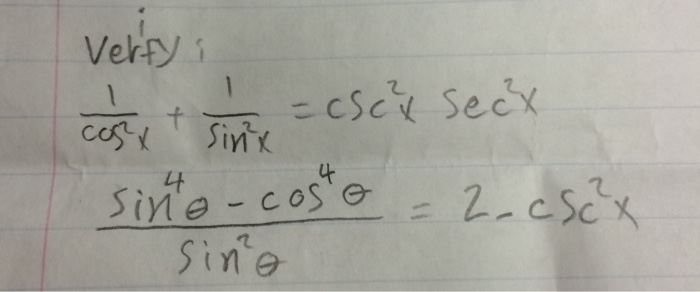 Verify:
1/cos²x + 1/sin²x = csc²x sec²x
sin⁴θ - cos⁴θ / sin²θ = 2 - csc²x